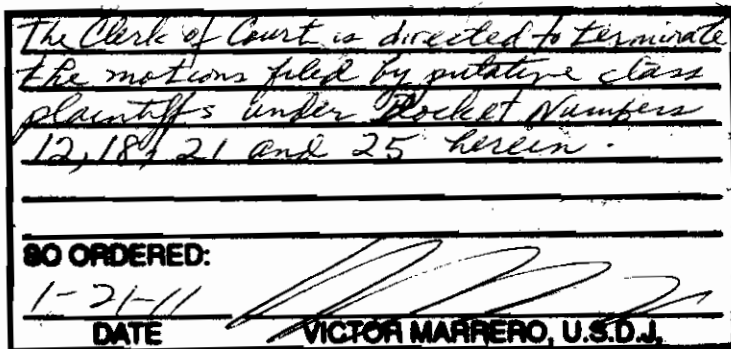 The Clerk of Court is directed to terminate
the motions filed by putative class
plaintiffs under Docket Numbers
12, 18, 21 and 25 herein.
SO ORDERED:
1-21-11
DATE VICTOR MARRERO, U.S.D.J.